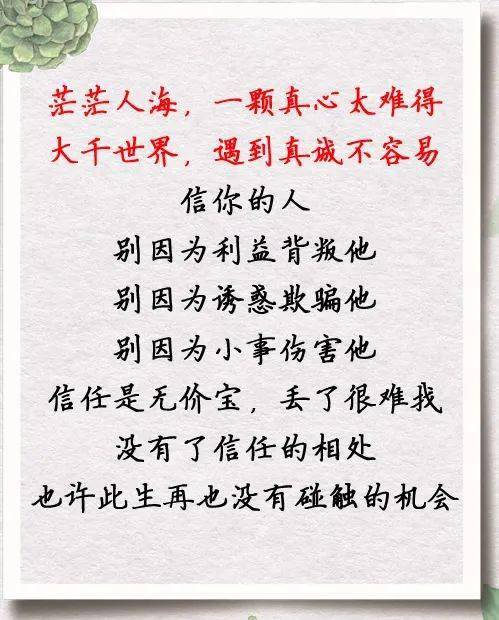 茫茫人海，一颗真心太难得
大千世界，遇到真诚不容易
信你的人
别因为利益背叛他
别因为诱惑欺骗他
别因为小事伤害他
信任是无价宝，丢了很难找
没有了信任的相处
也许此生再也没有碰触的机会